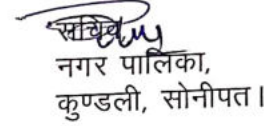 सचिव,
नगर पालिका,
कुण्डली, सोनीपत।